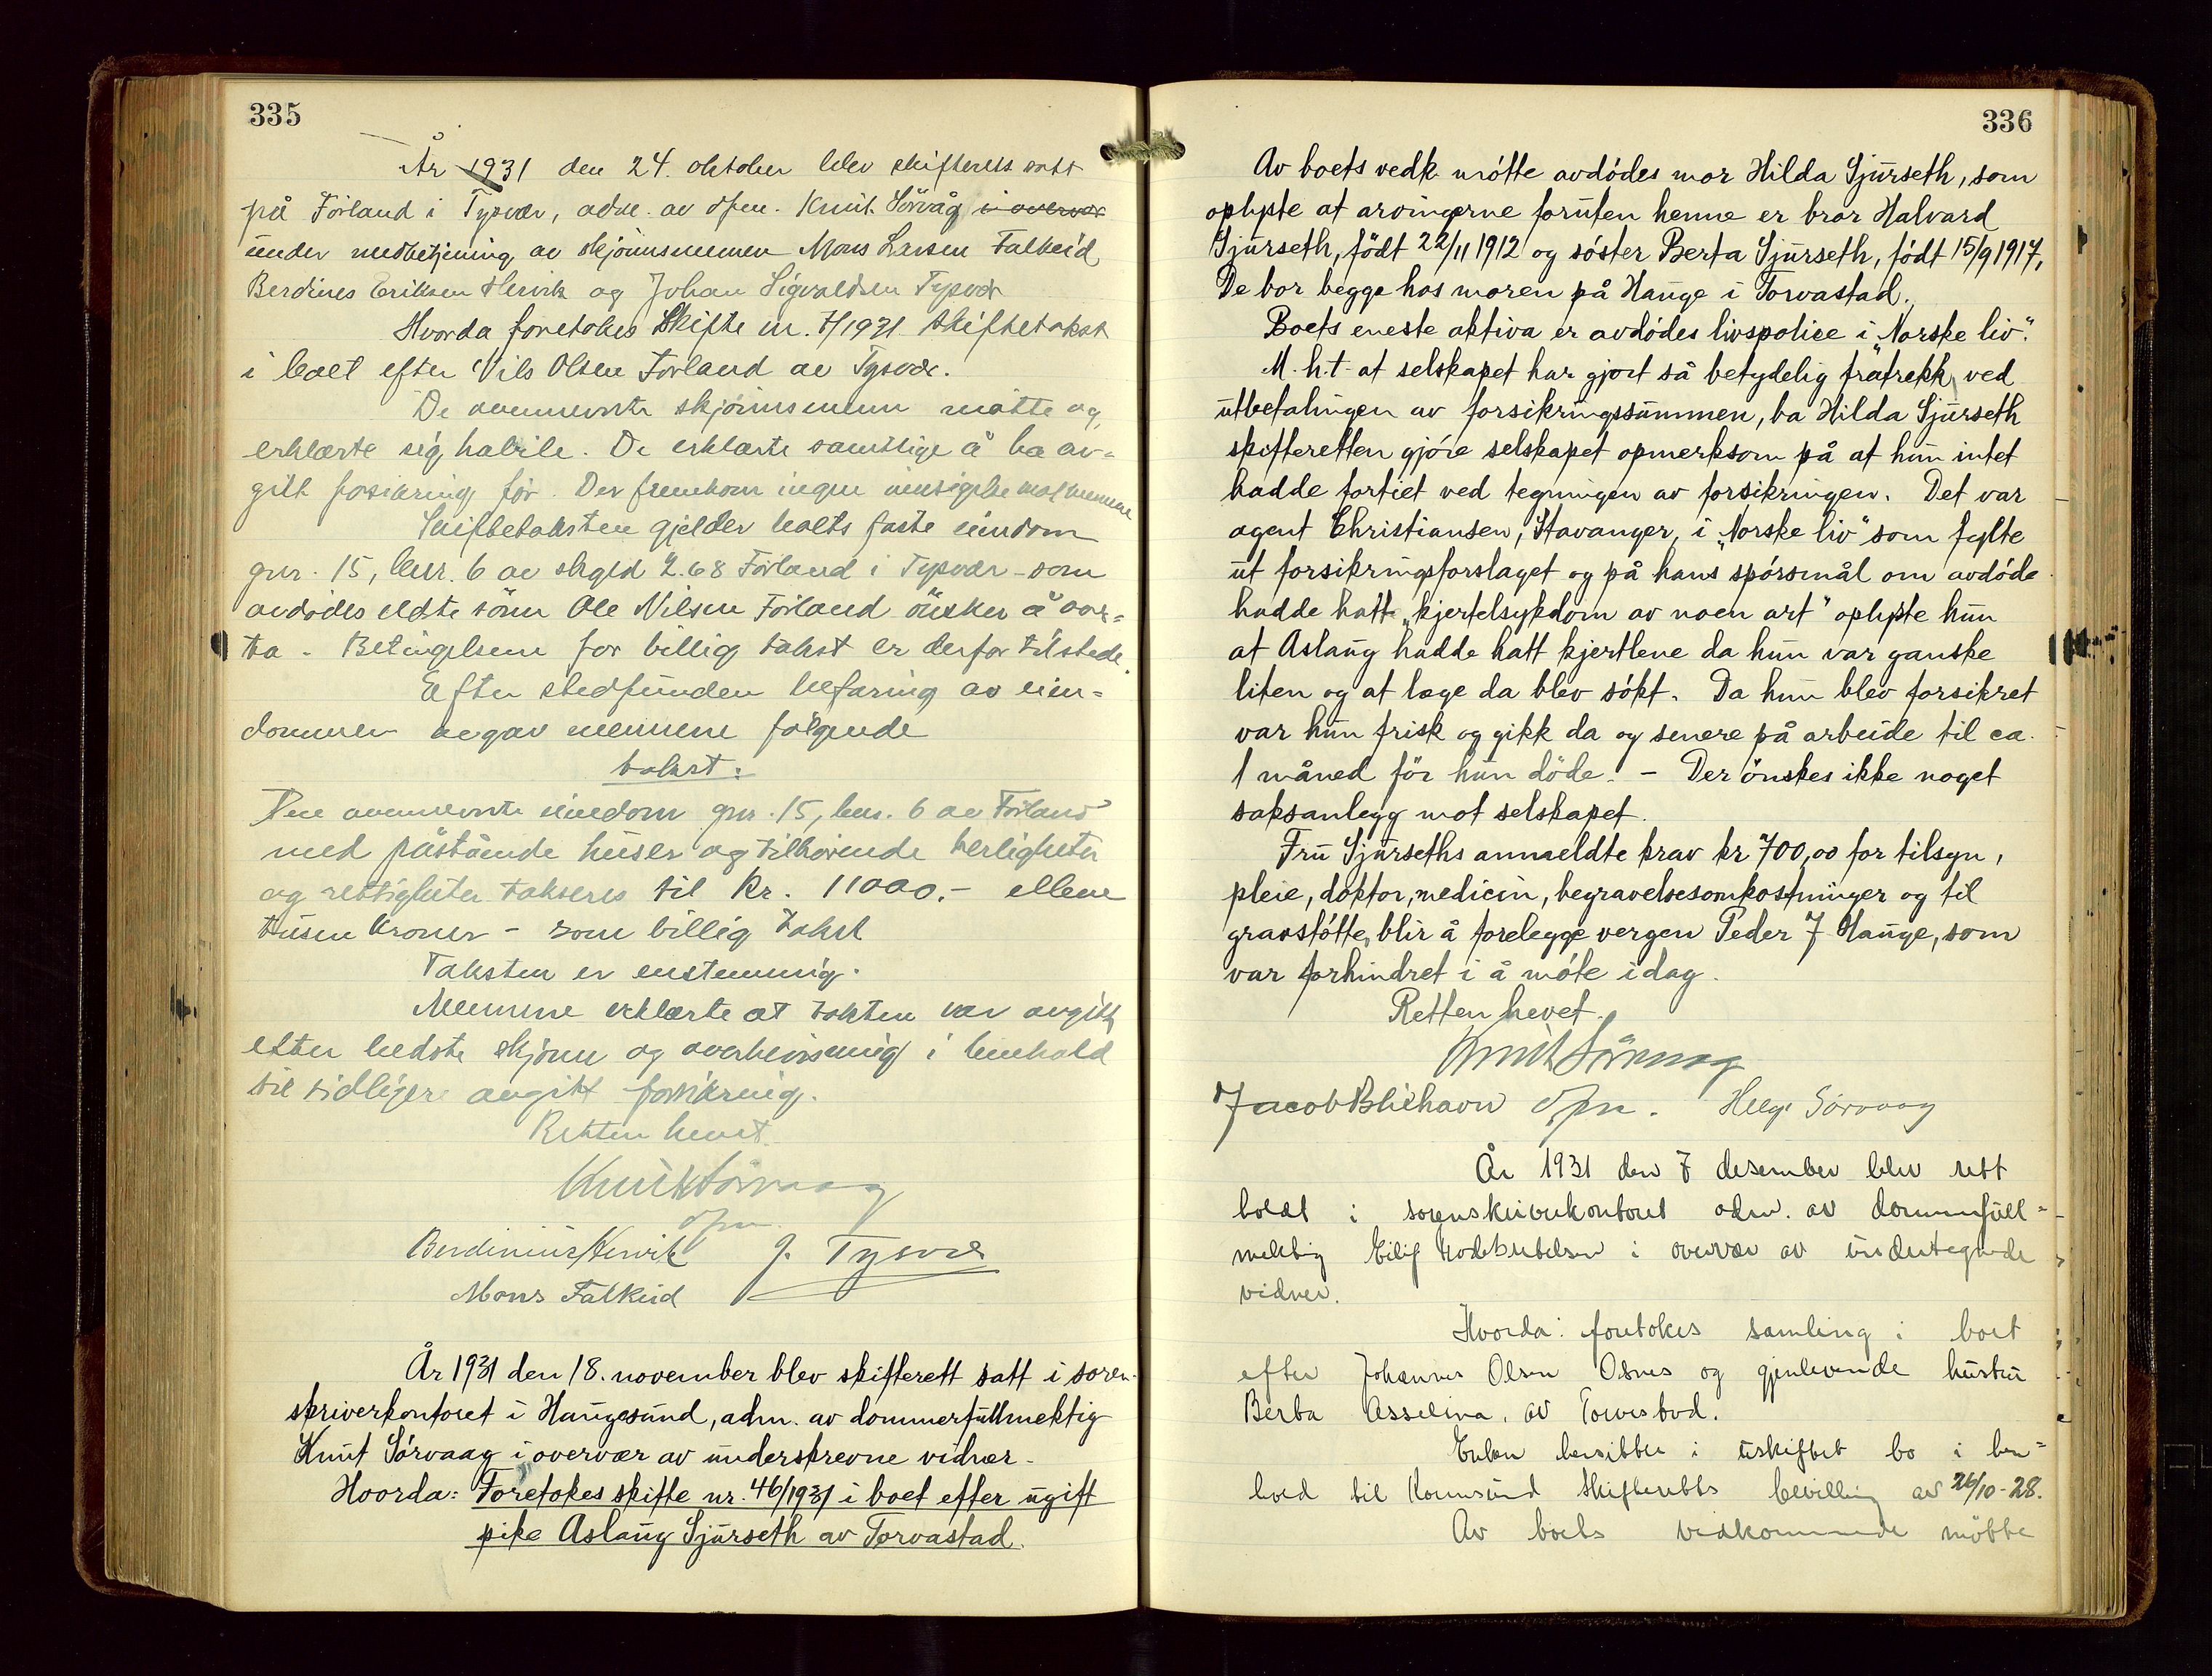 335
År 1931 den 24. oktober blev skifterett satt
på Förland i Tysvær, adm. av dfm. Knut Sörvåg i overvær
under medbetjening av skjönnsmennen Mons Larsen Falkeid
Berdines Eriksen Hervik og Johan Sigvaldsen Tysvær
Hvorda foretokes Skifte nr. 7/1931 Skiftetakst
i boet efter Nils Olsen Forland av Tysvær.
De ovennevnte skjönnsmenn mötte og
erklærte sig habile. De erklærte samtlige å ha av-
gitt forsikring för. Der fremkom ingen innsigelse mot mennene
Skiftetaksten gjelder boets faste eiendom
gnr. 15, bnr. 6 av skyld 2.68 Förland i Tysvær - som
avdödes eldte sönn Ole Nilsen Förland önsker å over-
ta - Betingelsene for billig takst er derfor tilstede.
Efter stedfunden befaring av eien-
dommen avgav mennene fölgende
takst:
Den ovennevnte eiendom gnr. 15, bnr. 6 av Förland
med påstående huser og tilhörende herligheter
og rettigheter takseres til kr. 11000.- elleve
tusen kroner - som billig takst
Taksten er enstemmig.
Mennene erklærte at taksten var avgitt
efter bedste skjönn og overbevisning i henhold
til tidligere avgitt forsikring.
Retten hevet.
Knut Sörvaag
dfm.
Berdinius Hervik J. Tysvær
Mons Falkeid
År 1931 den 18. november blev skifterett satt i soren-
skriverkontoret i Haugesund, adm. av dommerfullmektig
Knut Sórvaag i overvær av underskrevne vidner.
Hvorda: Foretokes skifte nr. 46/1931 i boet efter ugift
pike Aslaug Sjurseth av Torvastad.
336
Av boets vedk. mótte avdódes mor Hilda Sjurseth, som
oplyste at arvingerne foruten henne er bror Halvard
Sjurseth, födt 22/11 1912 og sóster Berta Sjurseth, födt 15/9 1917.
De bor begge hos moren på Hauge i Torvastad.
Boets eneste aktiva er avdódes livspolice i „Norske liv".
M.h.t. at selskapet har gjort så betydelig fratrekk ved
utbetalingen av forsikringssummen, ba Hilda Sjurseth
skifteretten gjóre selskapet opmerksom på at hun intet
hadde fortiet ved tegningen av forsikringen. Det var
agent Christiansen, Stavanger, i „Norske liv" som fylte
ut forsikringsforslaget og på hans spórsmål om avdóde
hadde hatt „kjertelsykdom av noen art" oplyste hun
at Aslaug hadde hatt kjertlene da hun var ganske
liten og at læge da blev sókt. Da hun blev forsikret
var hun frisk og gikk da og senere på arbeide til ca.
1 måned för hun döde. - Der önskes ikke noget
saksanlegg mot selskapet.
Fru Sjurseths anmeldte krav kr 700,00 for tilsyn,
pleie, doktor, medicin, begravelsesomkostninger og til
gravstótte, blir å forelegge vergen Peder J Hauge, som
var forhindret i å móte idag.
Retten hevet.
Knut Sörvaag
Jacob Blikhavn dfm. Helge Sörvaag
År 1931 den 7 desember blev rett
holdt i sorenskriverkontoret adm. av dommerfull-
mektig Eilif i overvær av undertegnede
vidner.
Hvorda: foretokes samling i boet
efter Johannes Olsen Osnes og gjenlevende hustru
Berta Asseline, av Torvestad.
Enken hensitter i uskiftet bo i hen-
hold til Karmsund Skifteretts bevilling av 26/10-28.
Av boets vedkommende mötte